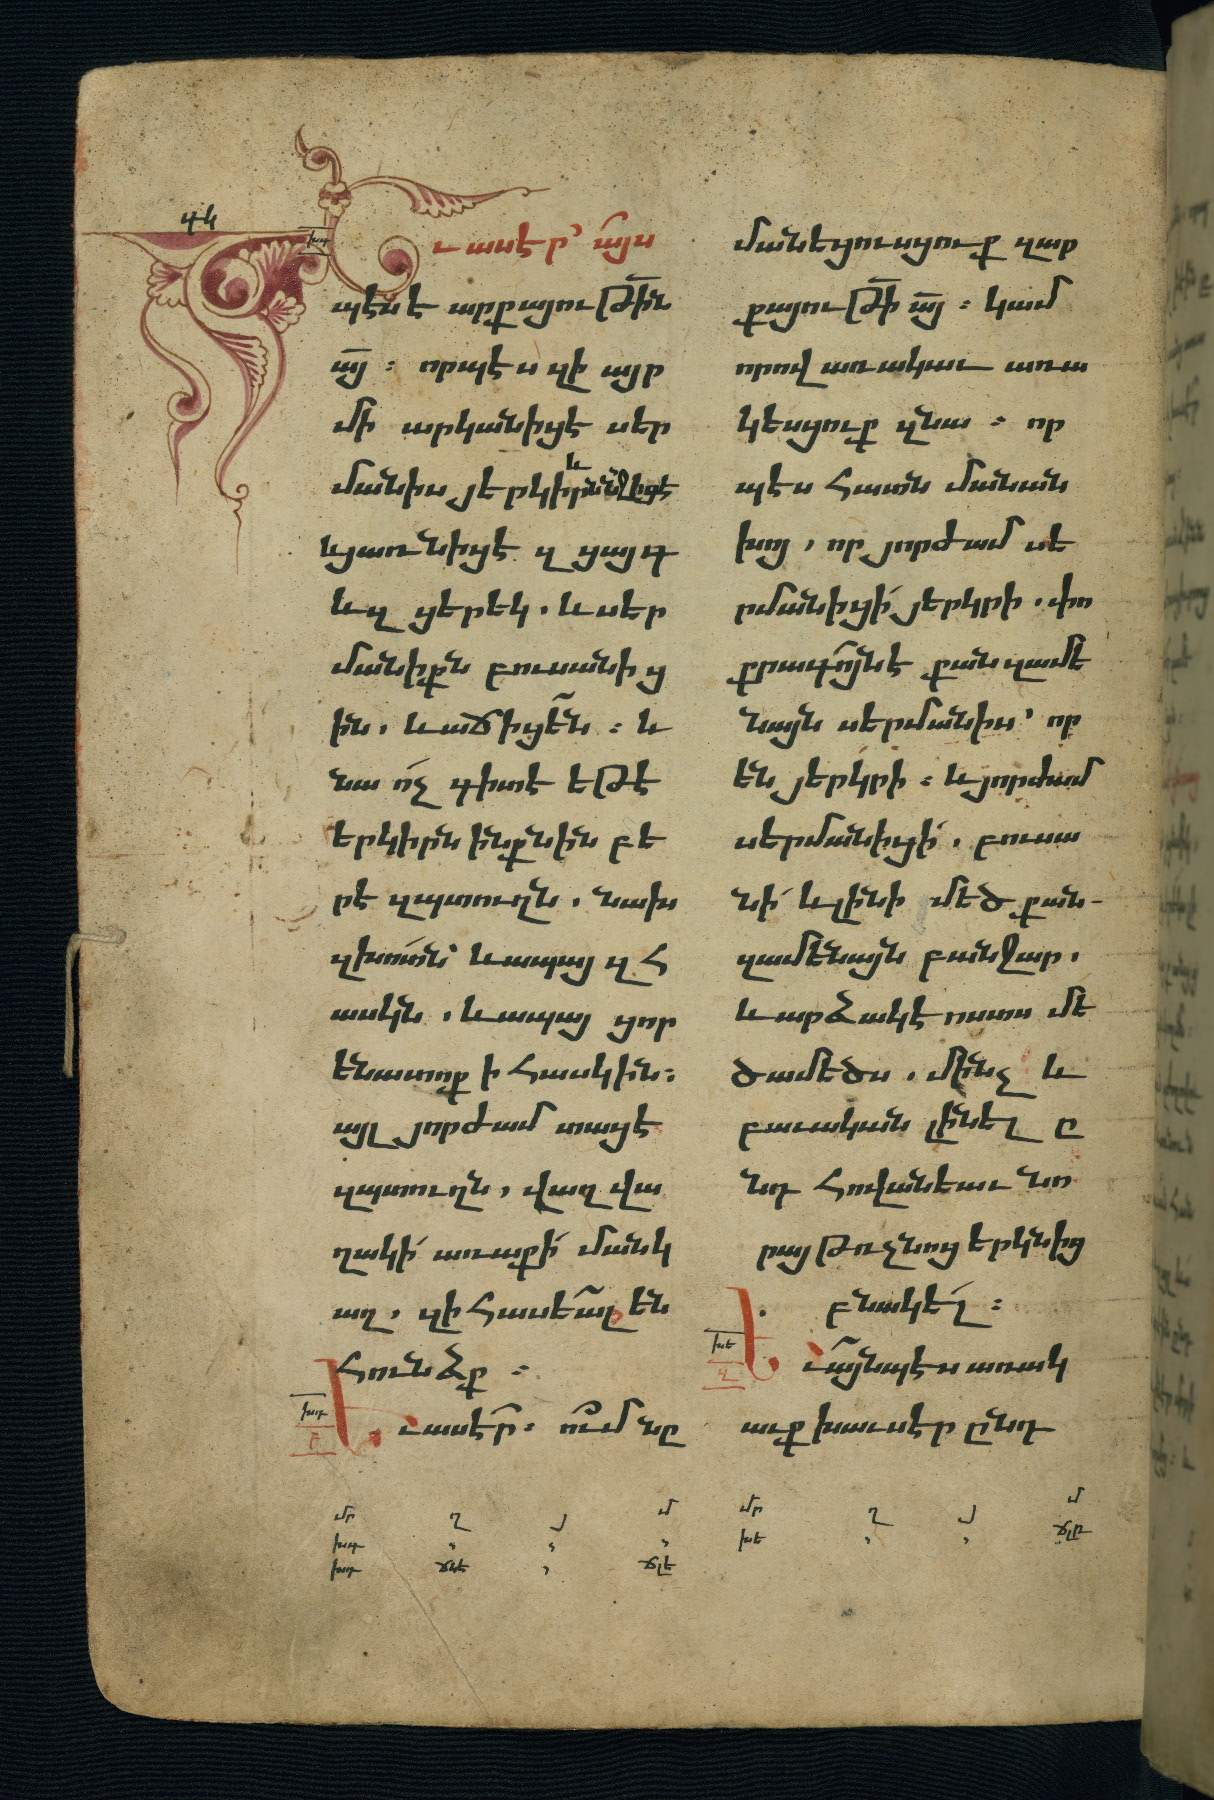 գկ
խգ
Եւ ասէր՝ այս
պէս է արքայութին
այ ։ որպէս զի այր
մի արկանիցէ սեր
մանիս յերկիր և ննջիցէ
և յառնիցէ զ ցայգ
և զ ցերեկ . և սեր
մանիքն բուսանից
ին . և աճիցեն ։ և
նա ոչ գիտէ եթէ
երկիրն ինքնին բե
րէ զպտուղն . նախ
զխոտն՝ և ապայ զ հ
ասկն . և ապայ ցոր
ենատոք ի հասկին ։
այլ յորժամ տացէ
զպտուղն , վաղվա
ղակի առաքի մանկ
աղ , զի հասեալ են
հունձք ։
խդ
Եւ ասէր ։ ում նը
մանեցուսցուք զար
քայութի այ ։ կամ
որով առակաւ առա
կեսցուք զնա ։ որ
պէս հատն մանան
խոյ , որ յորժամ սե
րմանիցի յերկրի . փո
քրագոյն է քան զամե
նայն սերմանիս՝ որ
են յերկրի ։ և յորժամ
սերմանիցի . բուսա
նի և լինի մեծ քան-
զամենայն բանջար .
և արձակէ ոստս մե
ծամեծս . մինչ և
բաւական լինել ը
նդ հովանեաւ նո
րայ թռչնոց երկնից
բնակել ։
խե
Եւ այնպէս առակ
աւք խաւսէր ընդ
մր ղ յ մ
խգ
խդ ճլէ
մր ղ յ մ
խե ճլը